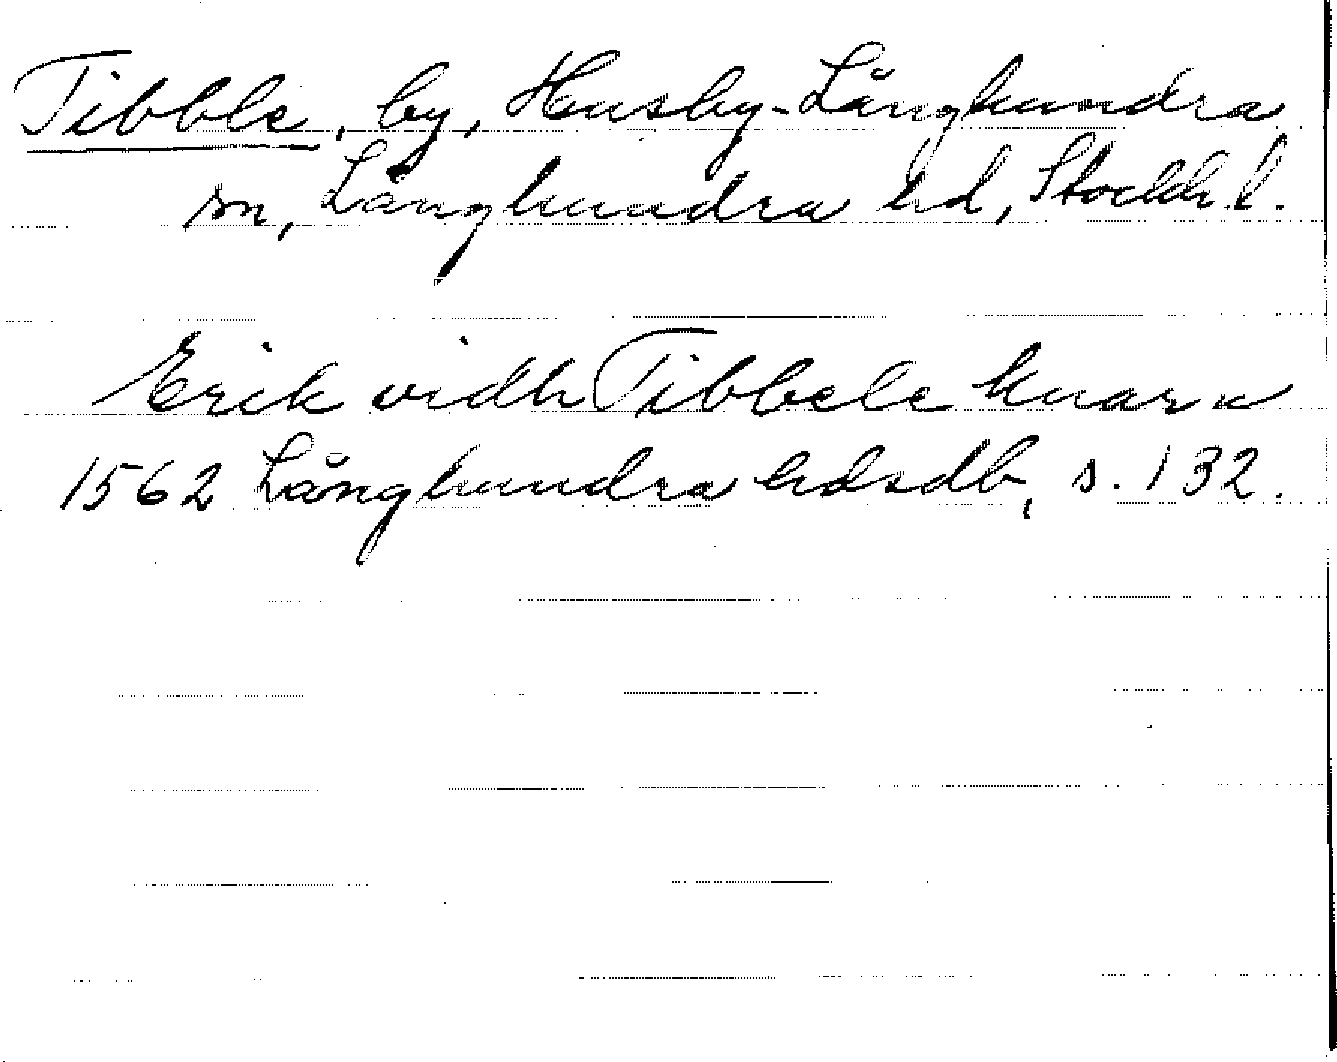 Tibble, by, Husby-Långhundra
sn, Långhundra hd, Stockh. l.
Erik vidh Tibbele kuarn
1562 Långhundra hdsdb, s. 132.